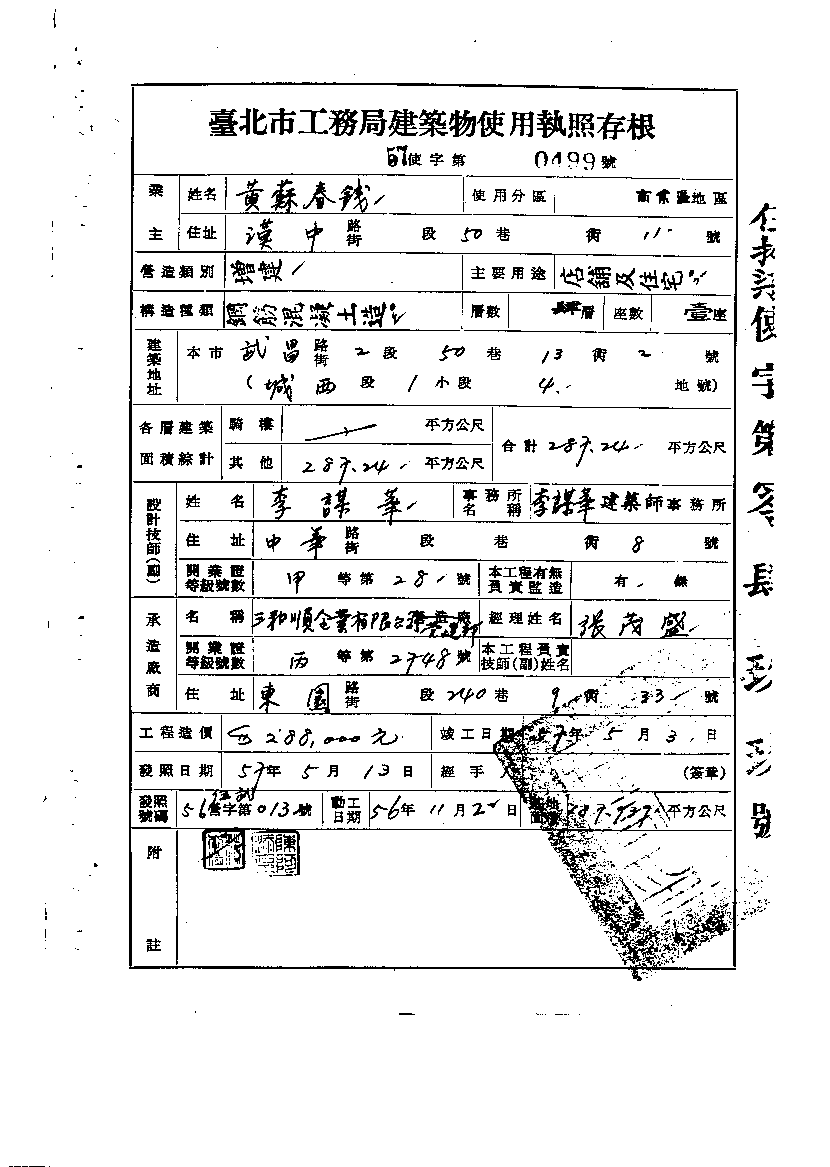 臺北市工務局建築物使用執照存根
57使字第 0499號
業主 姓名 黃蘇春錢 使用分區 商業區地區
住址 漢中路街 段 50巷 衖 11 號
營造類別 增建 主要用途 店舖及住宅
構造種類 鋼筋混凝土造 層數 肆層 座數 壹座
建築地址 本市 武昌路街 2段 50巷 13衖 2 號
(城西段 1小段 4 地號)
各層建築面積綜計 騎樓 平方公尺 合計 287.24 平方公尺
其他 287.24 平方公尺
設計技師(副) 姓名 李謀華 事務所名稱 李謀華建築師事務所
住址 中華路街 段 巷 衖 8 號
開業證等級號數 甲等第281號 本工程有無負責監造 有.無
承造廠商 名稱 三和順企業有限公司營造廠 經理姓名 張茂盛
開業證等級號數 丙等第2748號 本工程負責技師(副)姓名
住址 東園路街 段 240巷 9衖 33 號
工程造價 288,000元 竣工日期 57年5月3日
發照日期 57年5月13日 經手人 (簽章)
發照號碼 56營字第013號 動工日期 56年11月2日 平方公尺
附註
伍柒使字第零肆玖玖號